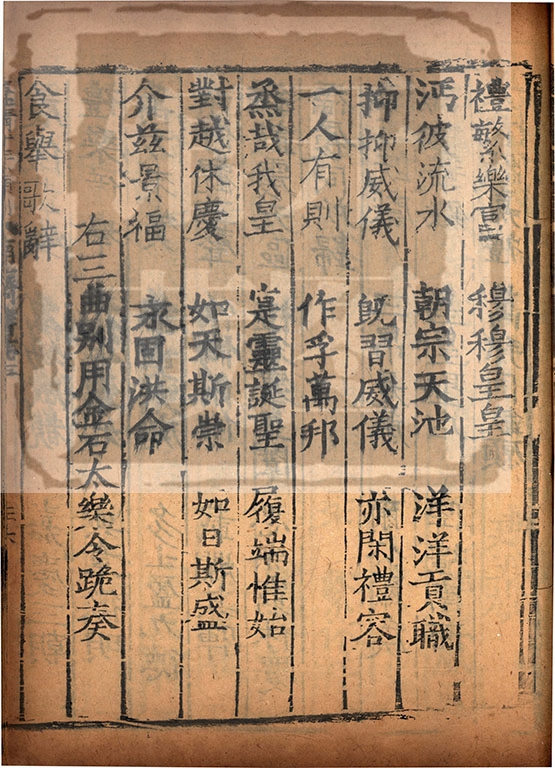 禮繁樂富 穆穆皇皇
沔彼流水 朝宗天池 洋洋貢職
抑抑威儀 既習威儀 亦閑禮容
一人有則 作孚萬邦
烝哉我皇 寔靈誕聖 履端惟始
對越休慶 如天斯崇 如日斯盛
介茲景福 永固洪命
右三曲別用金石太樂令跪奏
食舉歌辭